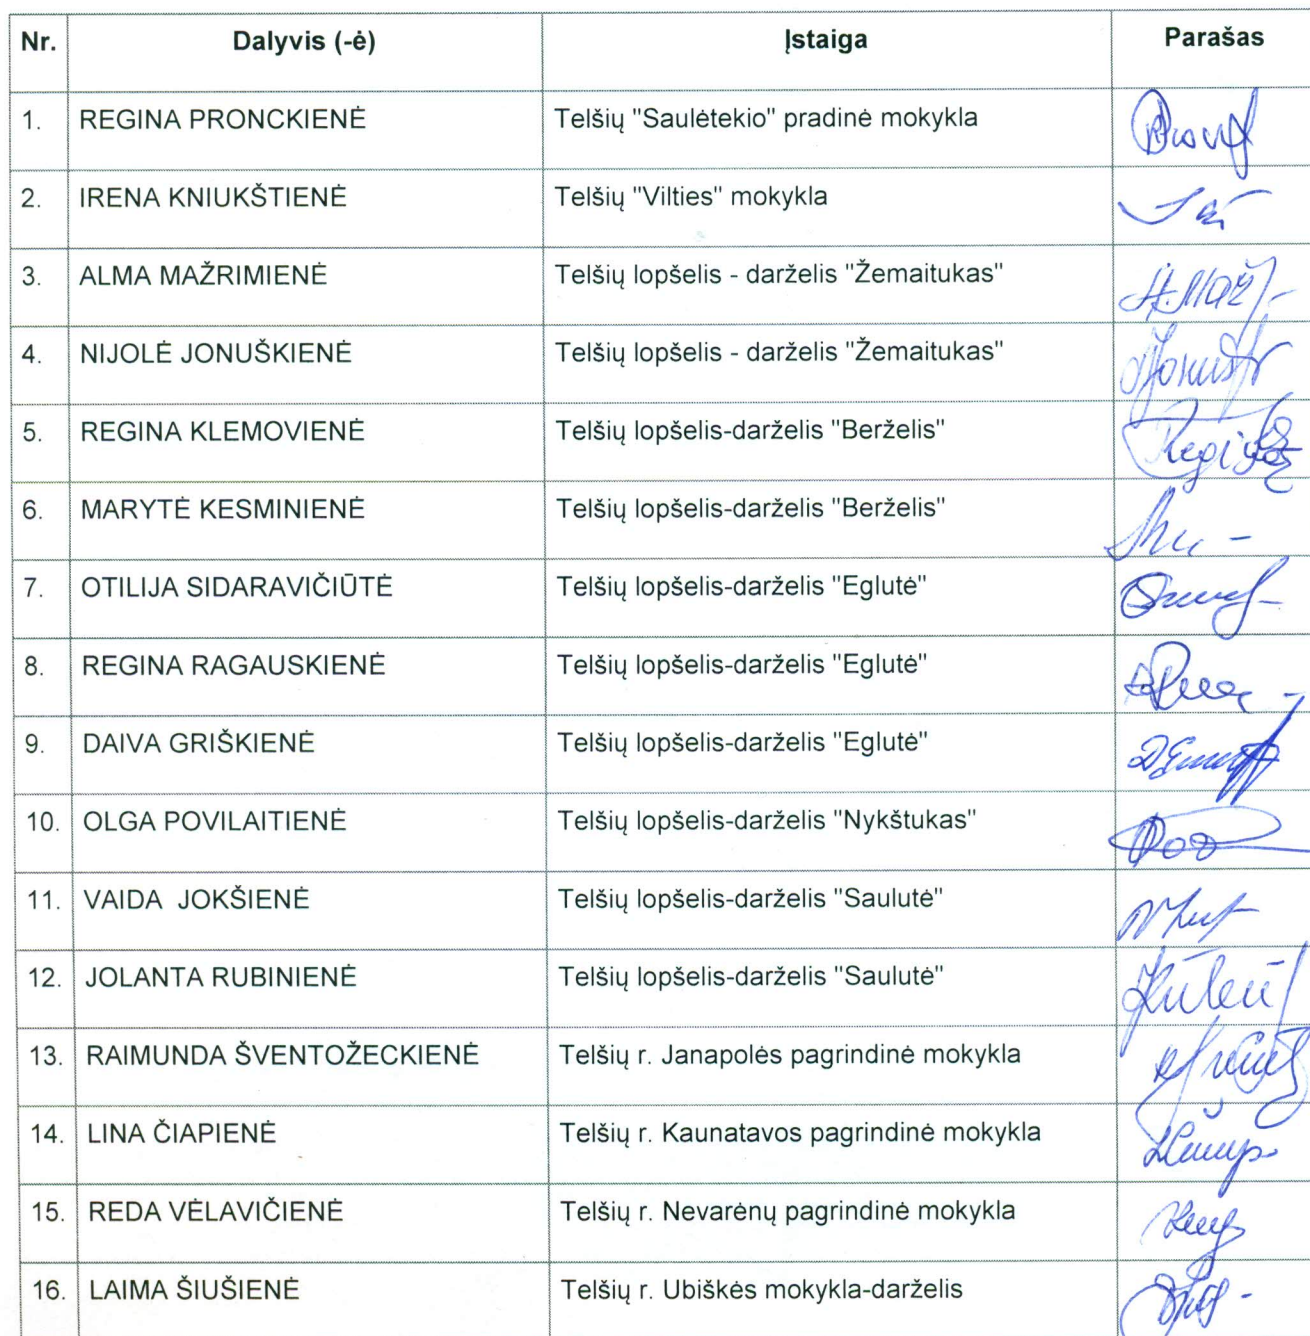 Nr. Dalyvis (-ė) Įstaiga Parašas
1. REGINA PRONCKIENĖ Telšių "Saulėtekio" pradinė mokykla
2. IRENA KNIUKŠTIENĖ Telšių "Vilties" mokykla
3. ALMA MAŽRIMIENĖ Telšių lopšelis - darželis "Žemaitukas" A.Maž
4. NIJOLĖ JONUŠKIENĖ Telšių lopšelis - darželis "Žemaitukas"
5. REGINA KLEMOVIENĖ Telšių lopšelis-darželis "Berželis"
6. MARYTĖ KESMINIENĖ Telšių lopšelis-darželis "Berželis"
7. OTILIJA SIDARAVIČIŪTĖ Telšių lopšelis-darželis "Eglutė"
8. REGINA RAGAUSKIENĖ Telšių lopšelis-darželis "Eglutė"
9. DAIVA GRIŠKIENĖ Telšių lopšelis-darželis "Eglutė"
10. OLGA POVILAITIENĖ Telšių lopšelis-darželis "Nykštukas"
11. VAIDA JOKŠIENĖ Telšių lopšelis-darželis "Saulutė"
12. JOLANTA RUBINIENĖ Telšių lopšelis-darželis "Saulutė"
13. RAIMUNDA ŠVENTOŽECKIENĖ Telšių r. Janapolės pagrindinė mokykla
14. LINA ČIAPIENĖ Telšių r. Kaunatavos pagrindinė mokykla
15. REDA VĖLAVIČIENĖ Telšių r. Nevarėnų pagrindinė mokykla
16. LAIMA ŠIUŠIENĖ Telšių r. Ubiškės mokykla-darželis